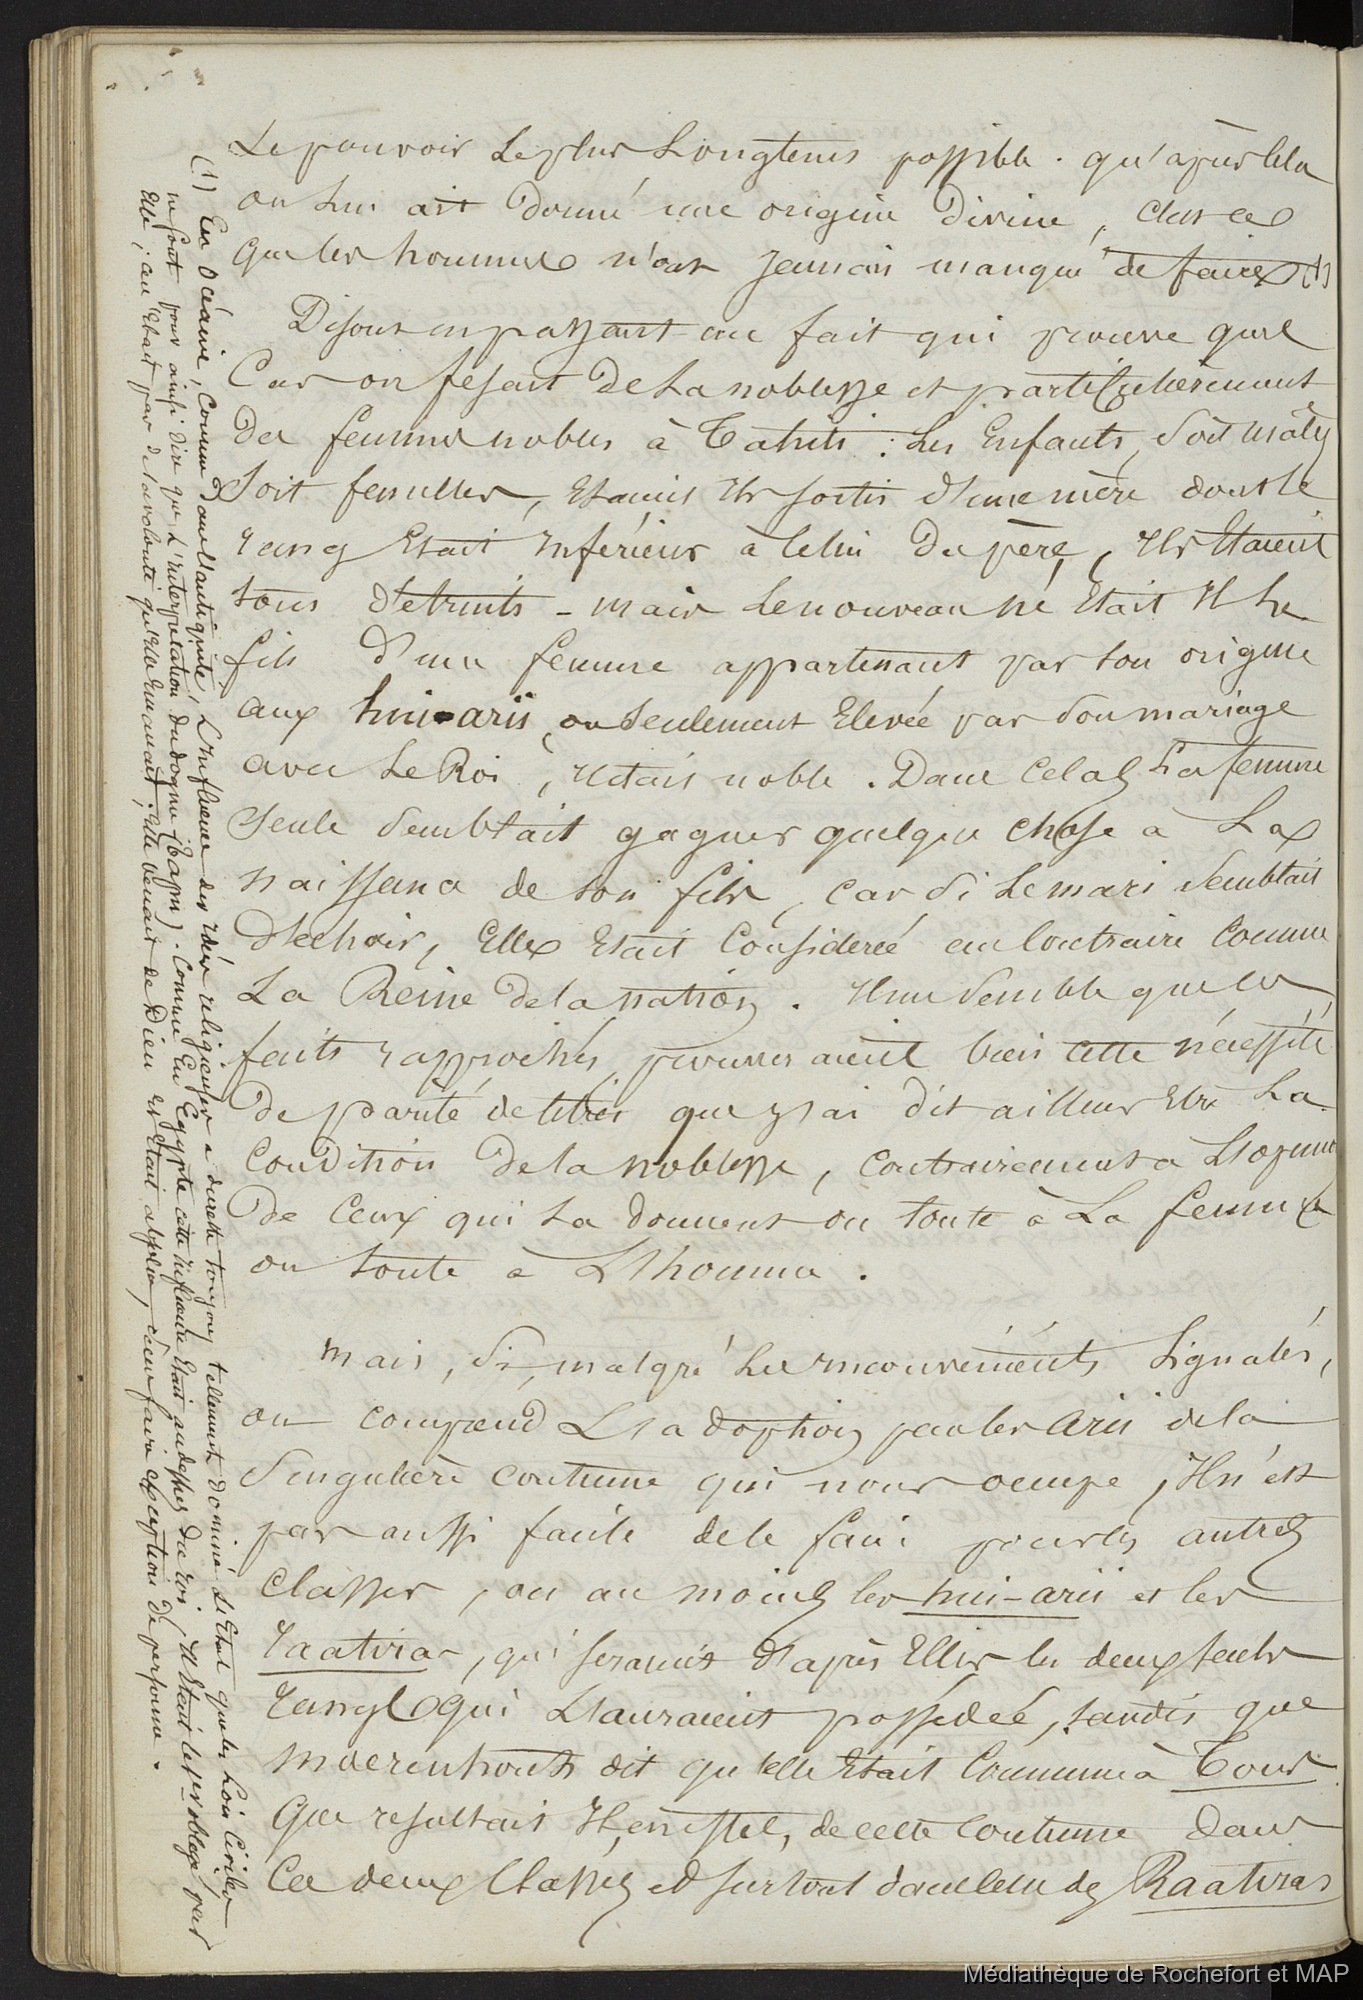 Le pouvoir le plus longtems possible. qu'après cela
on lui ait donné une origine divine, c'est ce
que les hommes n'ont jamais manqué de faire (1)
Disons en passant un fait qui prouve quel
Cas on fesait de la noblesse et particulièrement
des femmes nobles à Tahiti : les Enfants, soit mâles
soit femelles, Etaient Ils sortis d'une mère dont le
rang Etait Inférieur à celui du père, Ils Etaient
tous détruits - mais le nouveau né Etait Il le
fils d'une femme appartenant par son origine
aux hui-arii, ou seulement Elevée par son mariage
avec le Roi, Il était noble. Dans ce cas La femme
Seule semblait gagner quelque chose à La
naissance de son fils, car si le mari semblait
déchoir, Elle Etait Considereé au Contraire Comme
La Reine de la nation. Il me semble que ces
faits rapprochés prouveraient bien cette nécessité
de parité de titres que j'ai dit ailleurs Etre La
Condition de la noblesse, contrairement à L'opinion
de Ceux qui La donnent ou toute à La femme
ou toute à L'homme.
mais, si, malgré les mouvements signalés,
on comprend L'adoption par les arii de la
Singulière coutume qui nous occupe, Il n'est
pas aussi facile de le faire pour les autres
Classes, ou au moins les hui-arii et les
raatiras, qui seraient d'après Ellis les deux seuls
rangs qui L'auraient possédée, tandis que
moerenhouts dit qu'elle Etait Commune à Tous.
Que résultait Il, en effet, de cette Coutume dans
Ces deux Classes et surtout dans celle des Raatiras
(1) En océanie, comme dans l'antiquité, L'Influence des Idées religieuses a du être toujours tellement dominé L'Etat que les Lois Civiles
ne sont pour ainsi dire que L'Interprétation du dogme (tapu). Comme En Egypte cette Influence Etait au dessus du roi, Il Etait lésé obligé par
Elle ; ce n'Etait pas de la volonté qu'elle Emanait, Elle venait de Dieu Et Etait absolue, sans faire exception de personne.
Médiathèque de Rochefort et MAP